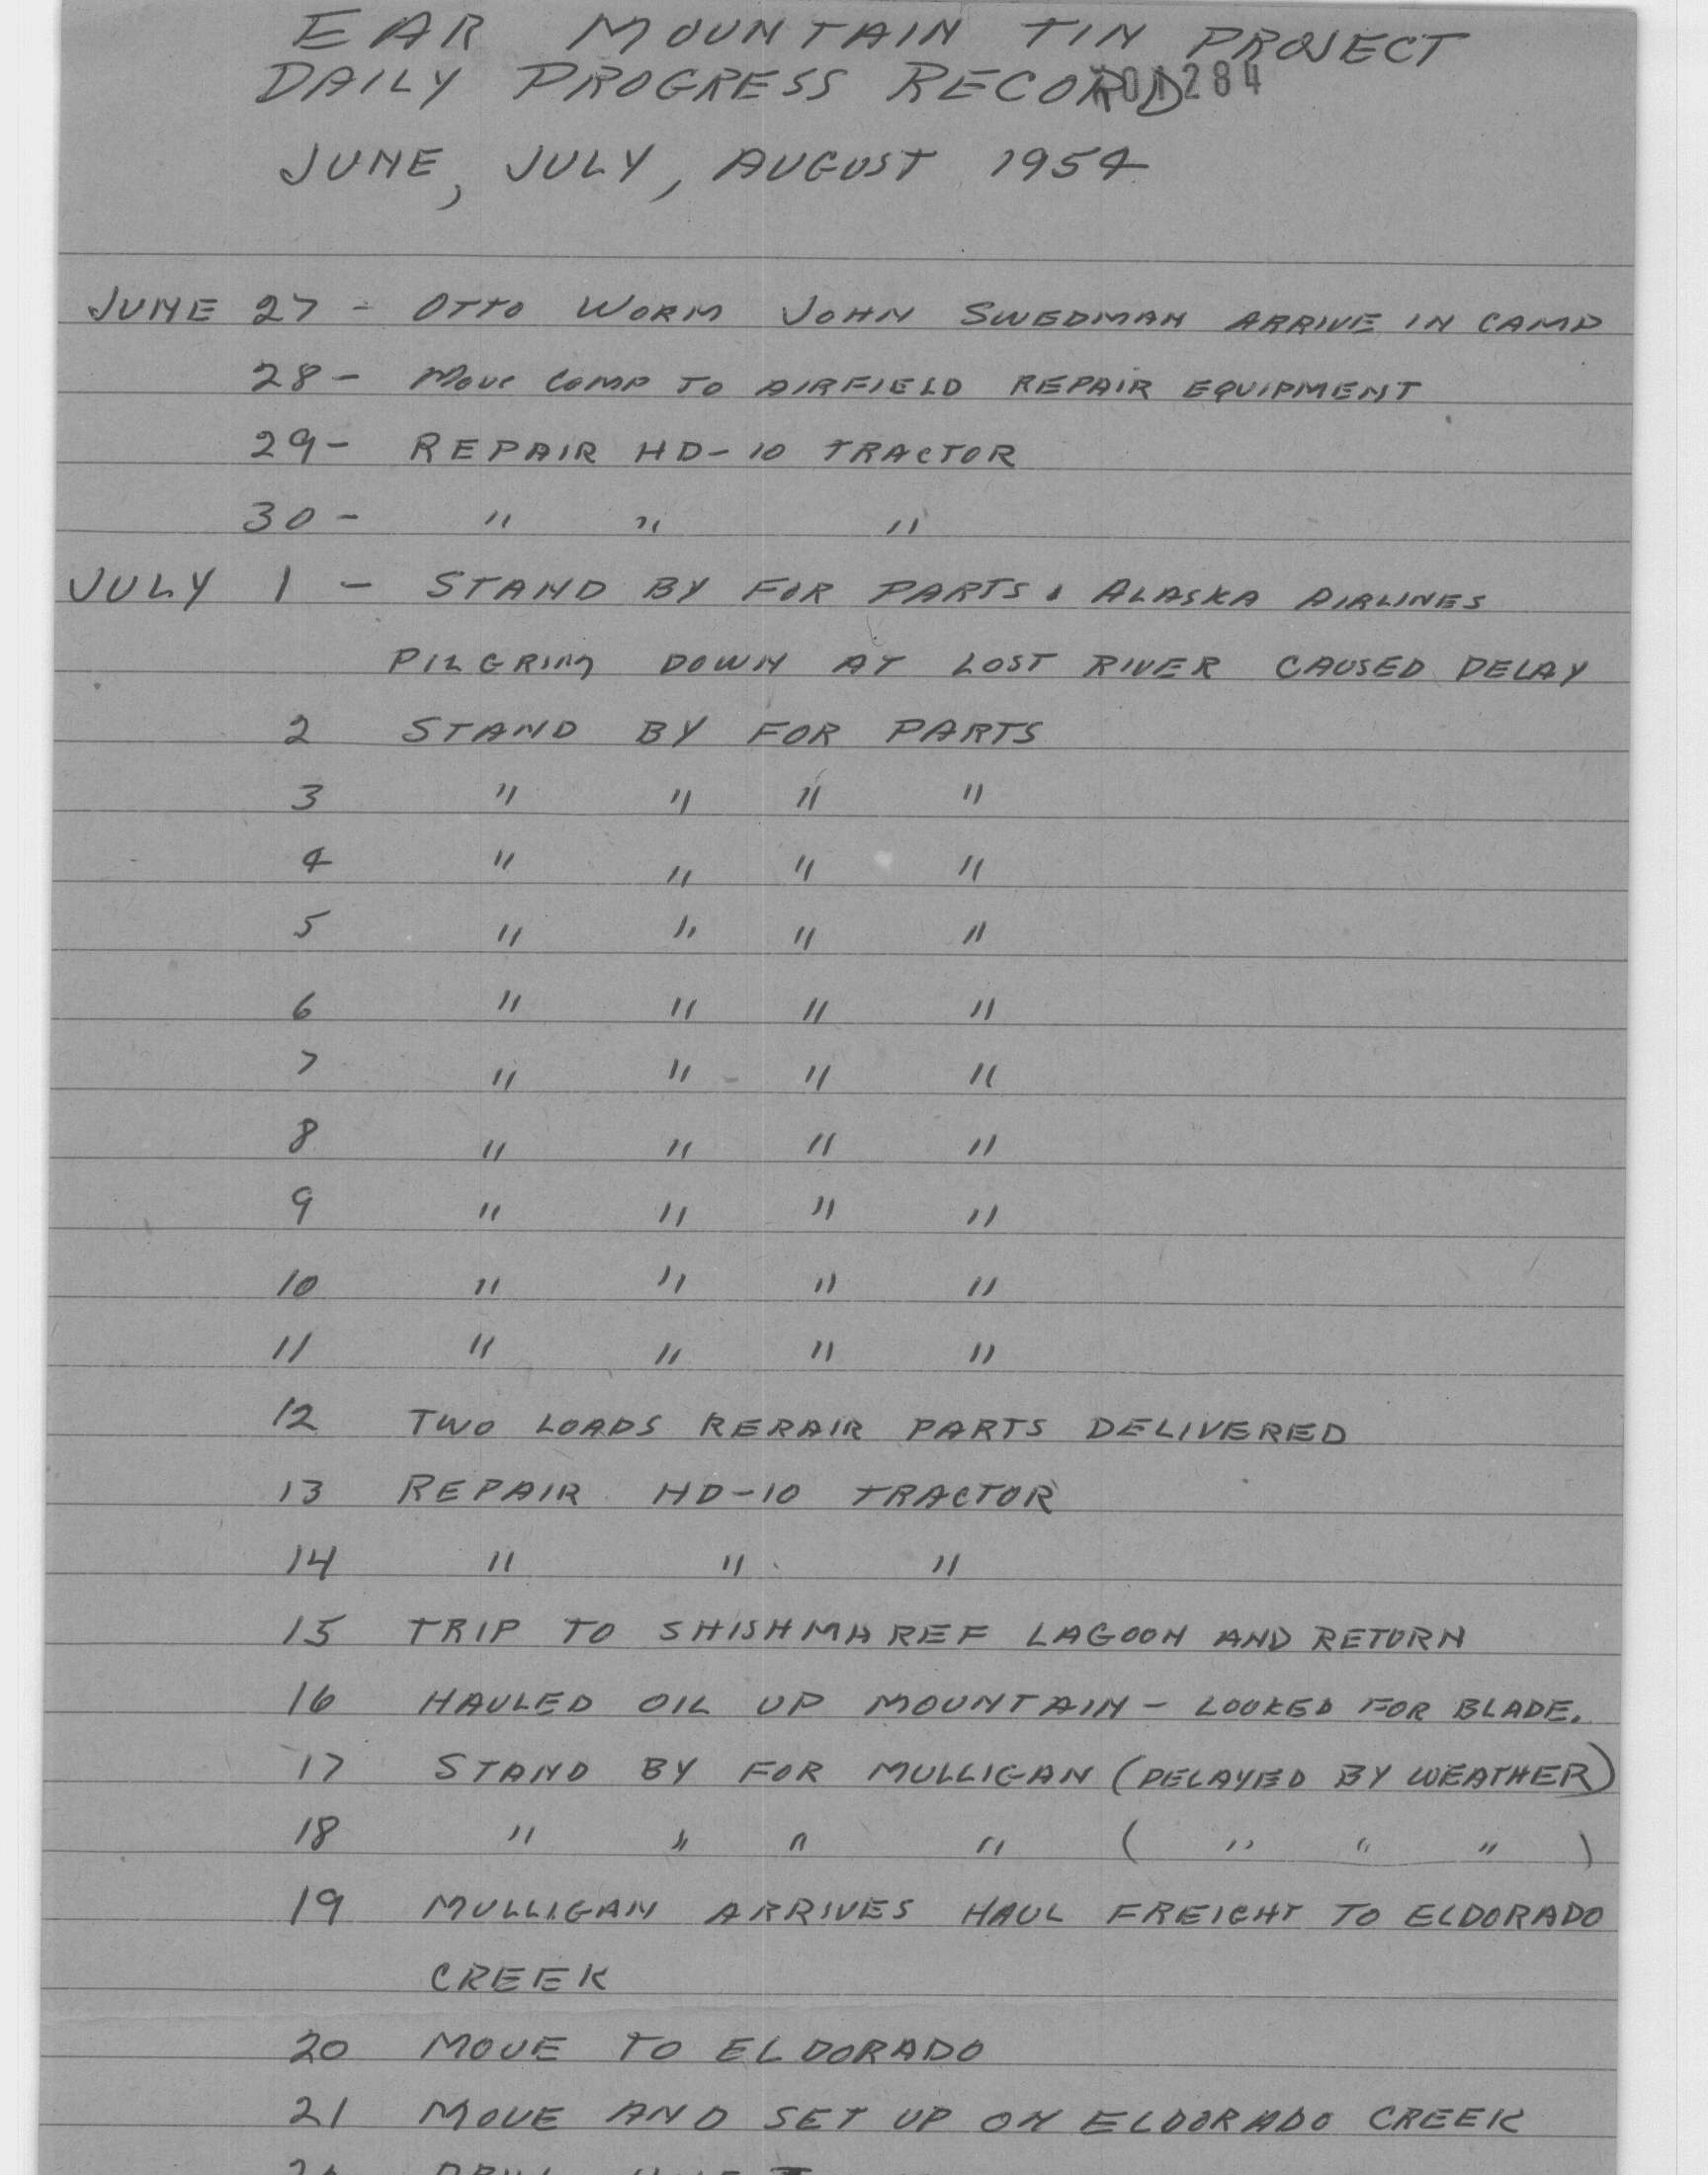 EAR MOUNTAIN TIN PROJECT
DAILY PROGRESS RECORD
284
JUNE, JULY, AUGUST 1954
JUNE 27 - OTTO WORM JOHN SWEDMAN ARRIVE IN CAMP
28 - MOVE CAMP TO AIRFIELD REPAIR EQUIPMENT
29 - REPAIR HD-10 TRACTOR
30 - " " "
JULY 1 - STAND BY FOR PARTS. ALASKA AIRLINES
PILGRIM DOWN AT LOST RIVER CAUSED DELAY
2 STAND BY FOR PARTS
3 " " " "
4 " " " "
5 " " " "
6 " " " "
7 " " " "
8 " " " "
9 " " " "
10 " " " "
11 " " " "
12 TWO LOADS REPAIR PARTS DELIVERED
13 REPAIR HD-10 TRACTOR
14 " " "
15 TRIP TO SHISHMAREF LAGOON AND RETURN
16 HAULED OIL UP MOUNTAIN - LOOKED FOR BLADE.
17 STAND BY FOR MULLIGAN (DELAYED BY WEATHER)
18 " " " " ( " " " )
19 MULLIGAN ARRIVES HAUL FREIGHT TO ELDORADO
CREEK
20 MOVE TO ELDORADO
21 MOVE AND SET UP ON ELDORADO CREEK